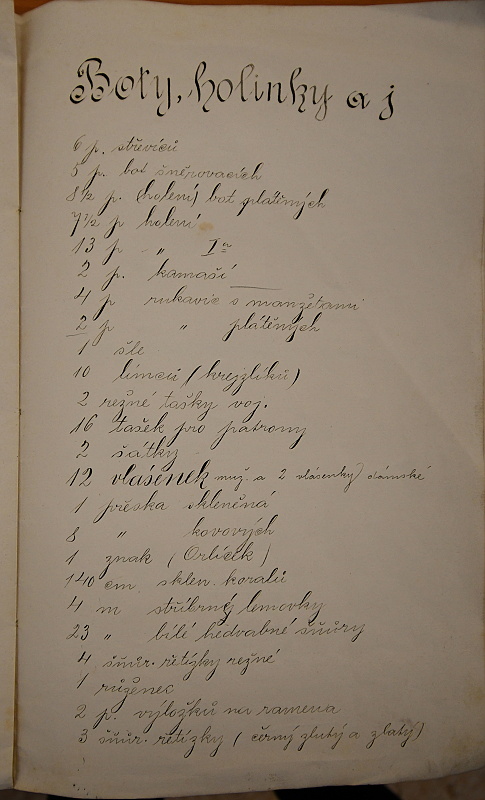 Boty, holinky a j
6 p. střevíců
5 p. bot šněrovacích
8½ p. (holení) bot plátěných
7½ p holení
13 p „ Iª
2 p. kamaší
4 p rukavic s manžetami
2 p „ plátěných
1 šle
10 límců (krejzlíků)
2 režné tašky voj.
16 tašek pro patrony
2 šátky
12 vlásenek muž. a 2 vlásenky) dámské
1 přeska skleněná
8 „ kovových
1 znak (Orlíček)
140 cm. sklen. koralů
4 m stříbrný lemovky
23 „ bílé hedvabné šňůry
4 šňůr. řetízky režné
1 růženec
2 p. výložků na ramena
3 šňůr. řetízky (černý žlutý a zlatý)